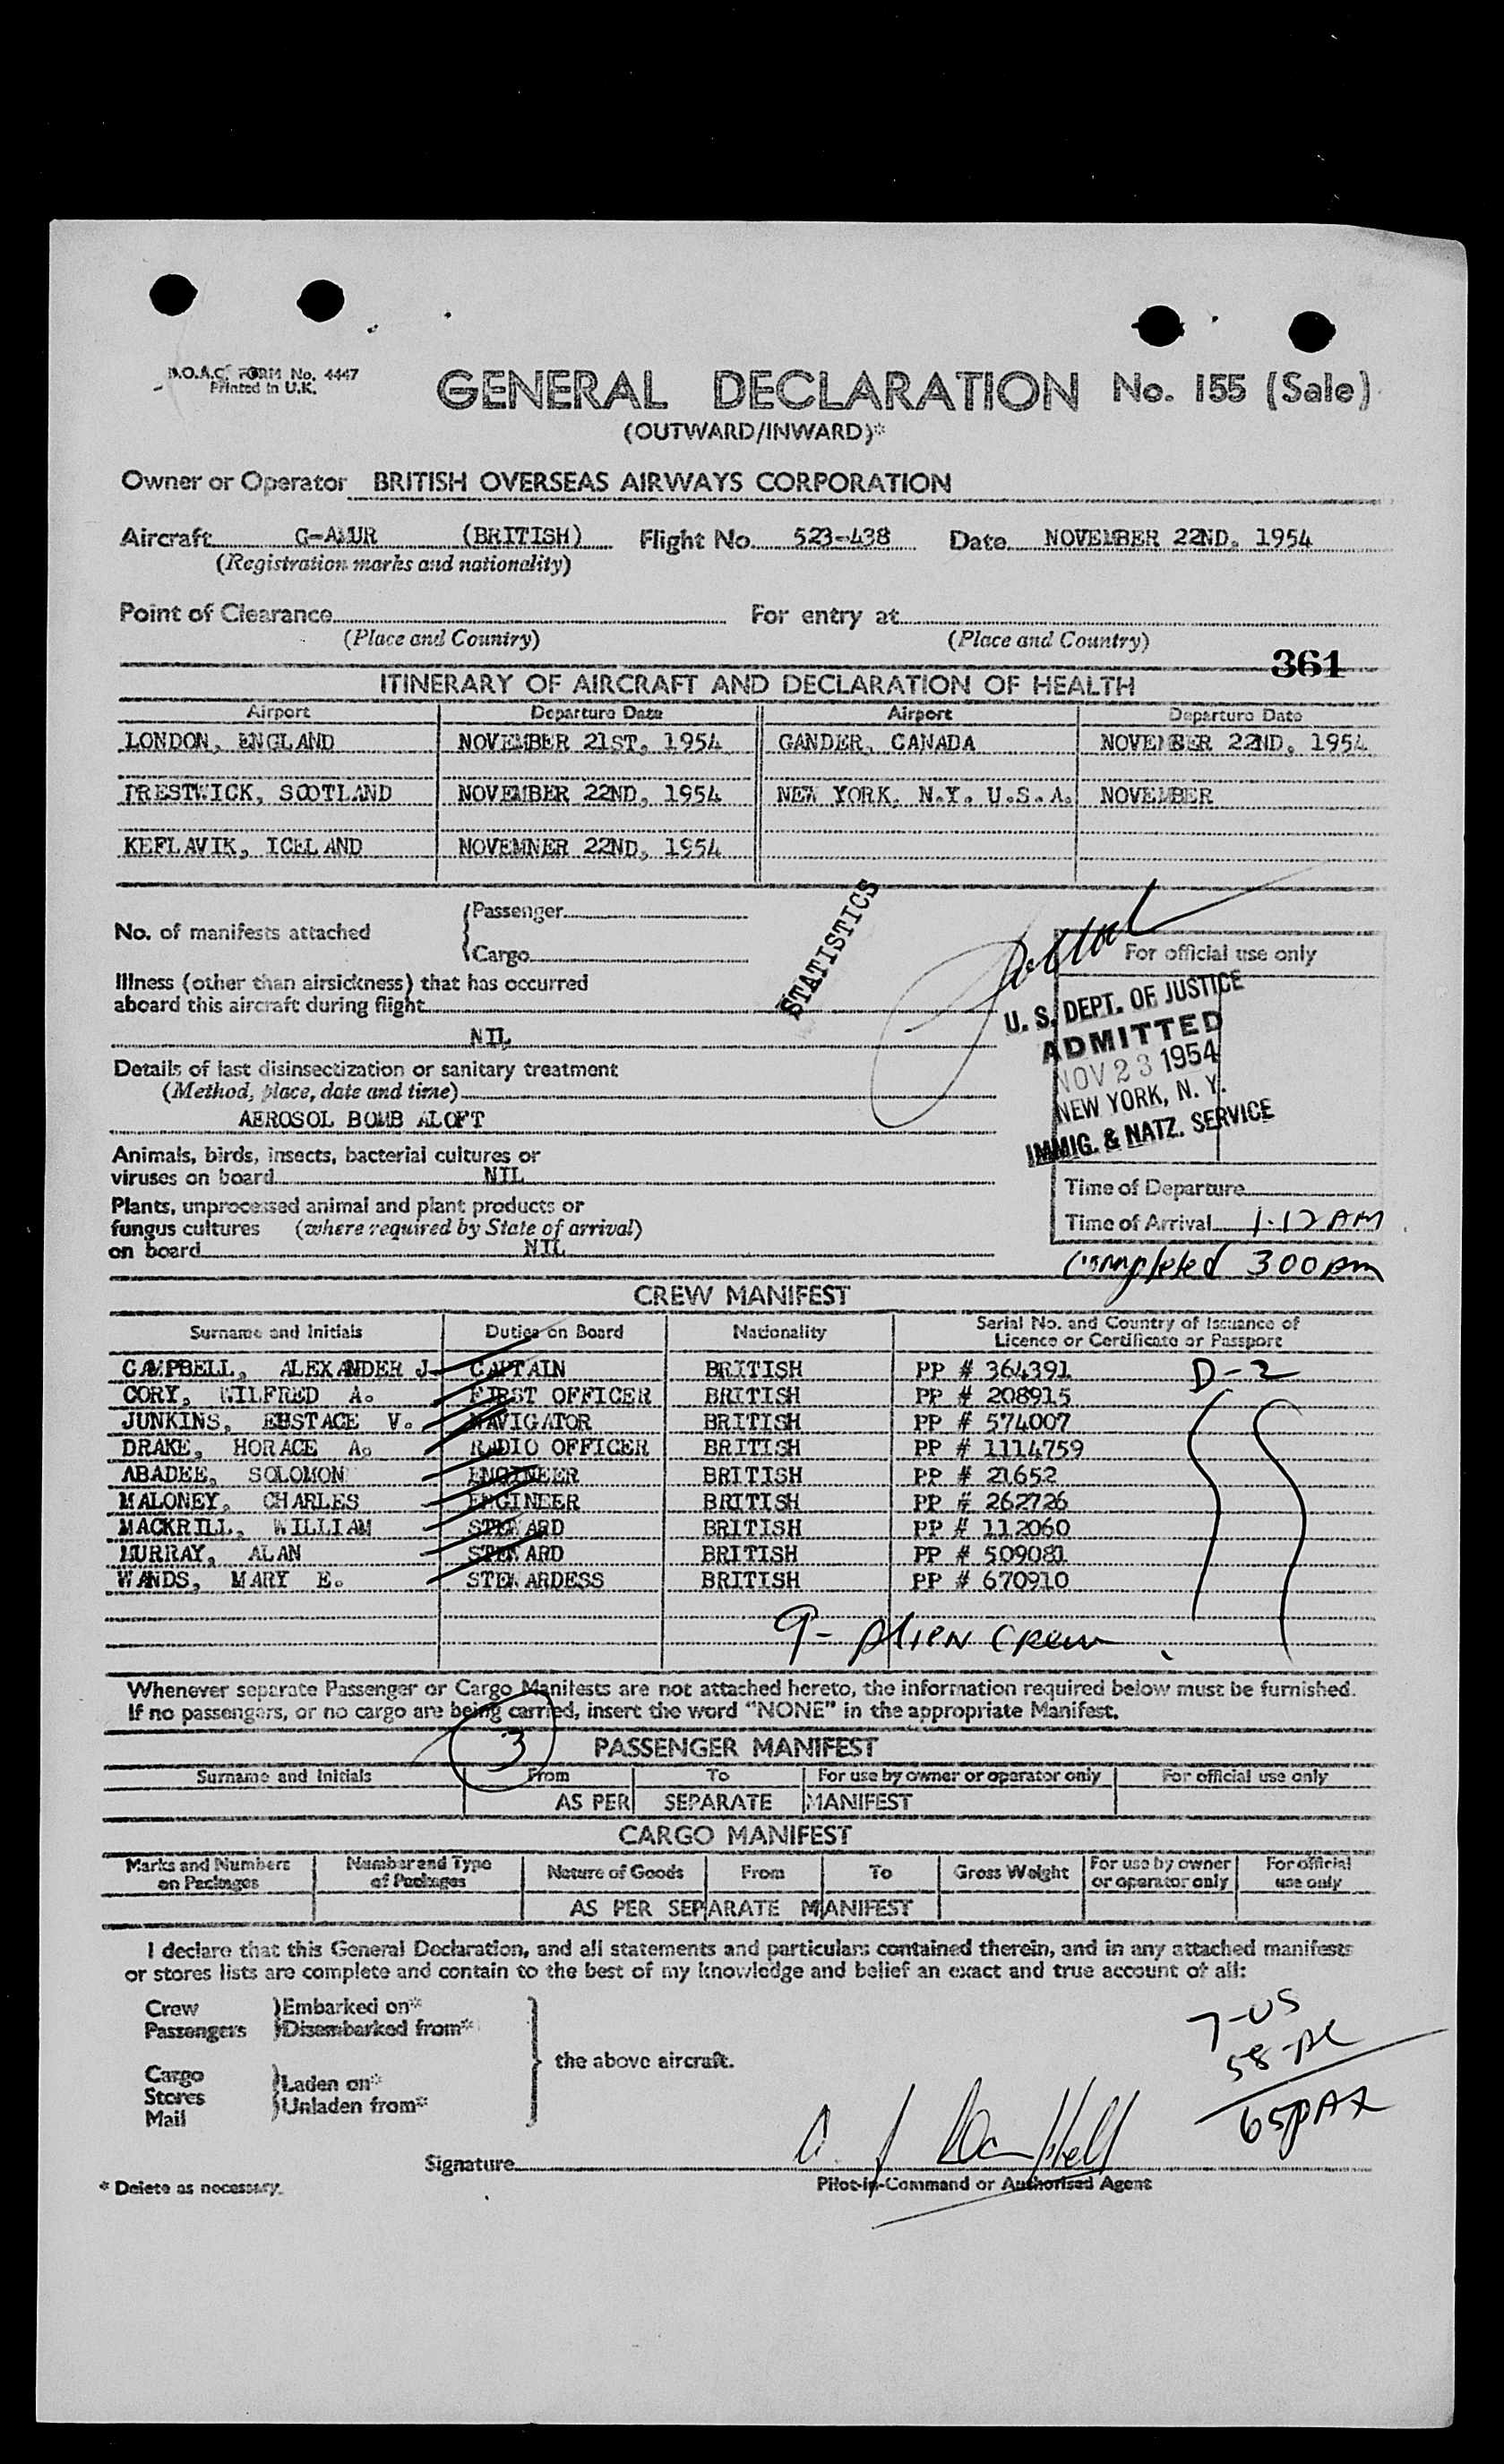 B.O.A.C. FORM No. 4447
Printed in U.K.
GENERAL DECLARATION No. 155 (Sale)
(OUTWARD/INWARD)*
Owner or Operator BRITISH OVERSEAS AIRWAYS CORPORATION
Aircraft G-AMUR (BRITISH) Flight No. 523-438 Date NOVEMBER 22ND, 1954
(Registration marks and nationality)
Point of Clearance For entry at
(Place and Country) (Place and Country)
361
ITINERARY OF AIRCRAFT AND DECLARATION OF HEALTH
Airport Departure Date Airport Departure Date
LONDON, ENGLAND NOVEMBER 21ST, 1954 GANDER, CANADA NOVEMBER 22ND, 1954
PRESTWICK, SCOTLAND NOVEMBER 22ND, 1954 NEW YORK, N.Y. U.S.A. NOVEMBER
KEFLAVIK, ICELAND NOVEMNER 22ND, 1954
No. of manifests attached
Passenger
Cargo
STATISTICS
For official use only
Illness (other than airsickness) that has occurred
aboard this aircraft during flight
NIL
U. S. DEPT. OF JUSTICE
ADMITTED
NOV 23 1954
NEW YORK, N. Y.
IMMIG. & NATZ. SERVICE
Details of last disinsectization or sanitary treatment
(Method, place, date and time)
AEROSOL BOMB ALOFT
Animals, birds, insects, bacterial cultures or
viruses on board NIL
Plants, unprocessed animal and plant products or
fungus cultures (where required by State of arrival)
on board NIL
Time of Departure
Time of Arrival 1.12 AM
Completed 300 am
CREW MANIFEST
Surname and Initials Duties on Board Nationality Serial No. and Country of Issuance of
Licence or Certificate or Passport
CAMPBELL, ALEXANDER J. CAPTAIN BRITISH PP # 364391 D-2
CORY, WILFRED A. FIRST OFFICER BRITISH PP # 208915
JUNKINS, EUSTACE V. NAVIGATOR BRITISH PP # 574007
DRAKE, HORACE A. RADIO OFFICER BRITISH PP # 1114759
ABADEE, SOLOMON ENGINEER BRITISH PP # 21652
MALONEY, CHARLES ENGINEER BRITISH PP # 262726
MACKRILL, WILLIAM STEWARD BRITISH PP # 112060
MURRAY, ALAN STEWARD BRITISH PP # 509081
WANDS, MARY E. STEWARDESS BRITISH PP # 670910
9- Alien Crew
Whenever separate Passenger or Cargo Manifests are not attached hereto, the information required below must be furnished.
If no passengers, or no cargo are being carried, insert the word "NONE" in the appropriate Manifest.
3
PASSENGER MANIFEST
Surname and Initials From To For use by owner or operator only For official use only
AS PER SEPARATE MANIFEST
CARGO MANIFEST
Marks and Numbers on Packages Number and Type of Packages Nature of Goods From To Gross Weight For use by owner or operator only For official use only
AS PER SEPARATE MANIFEST
I declare that this General Declaration, and all statements and particulars contained therein, and in any attached manifests
or stores lists are complete and contain to the best of my knowledge and belief an exact and true account of all:
Crew Embarked on*
Passengers Disembarked from*
the above aircraft.
Cargo
Stores Laden on*
Mail Unladen from*
7-US
58-AL
65 PAX
Signature A J Campbell
Pilot-in-Command or Authorised Agent
* Delete as necessary.